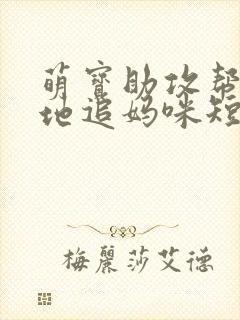 萌寶助攻幫
地追媽咪短
梅麗莎艾德